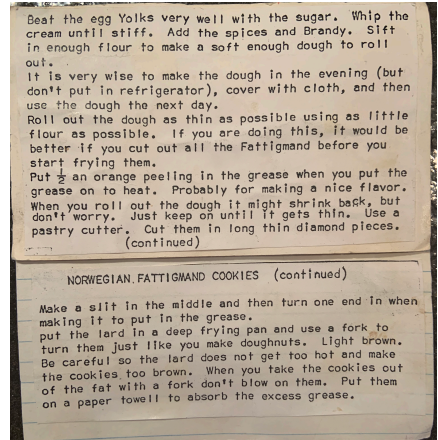 Beat the egg Yolks very well with the sugar. Whip the
cream until stiff. Add the spices and Brandy. Sift
in enough flour to make a soft enough dough to roll
out.
It is very wise to make the dough in the evening (but
don't put in refrigerator), cover with cloth, and then
use the dough the next day.
Roll out the dough as thin as possible using as little
flour as possible. If you are doing this, it would be
better if you cut out all the Fattigmand before you
start frying them.
Put ½ an orange peeling in the grease when you put the
grease on to heat. Probably for making a nice flavor.
When you roll out the dough it might shrink back, but
don't worry. Just keep on until it gets thin. Use a
pastry cutter. Cut them in long thin diamond pieces.
(continued)
NORWEGIAN FATTIGMAND COOKIES (continued)
Make a slit in the middle and then turn one end in when
making it to put in the grease.
put the lard in a deep frying pan and use a fork to
turn them just like you make doughnuts. Light brown.
Be careful so the lard does not get too hot and make
the cookies too brown. When you take the cookies out
of the fat with a fork don't blow on them. Put them
on a paper towell to absorb the excess grease.